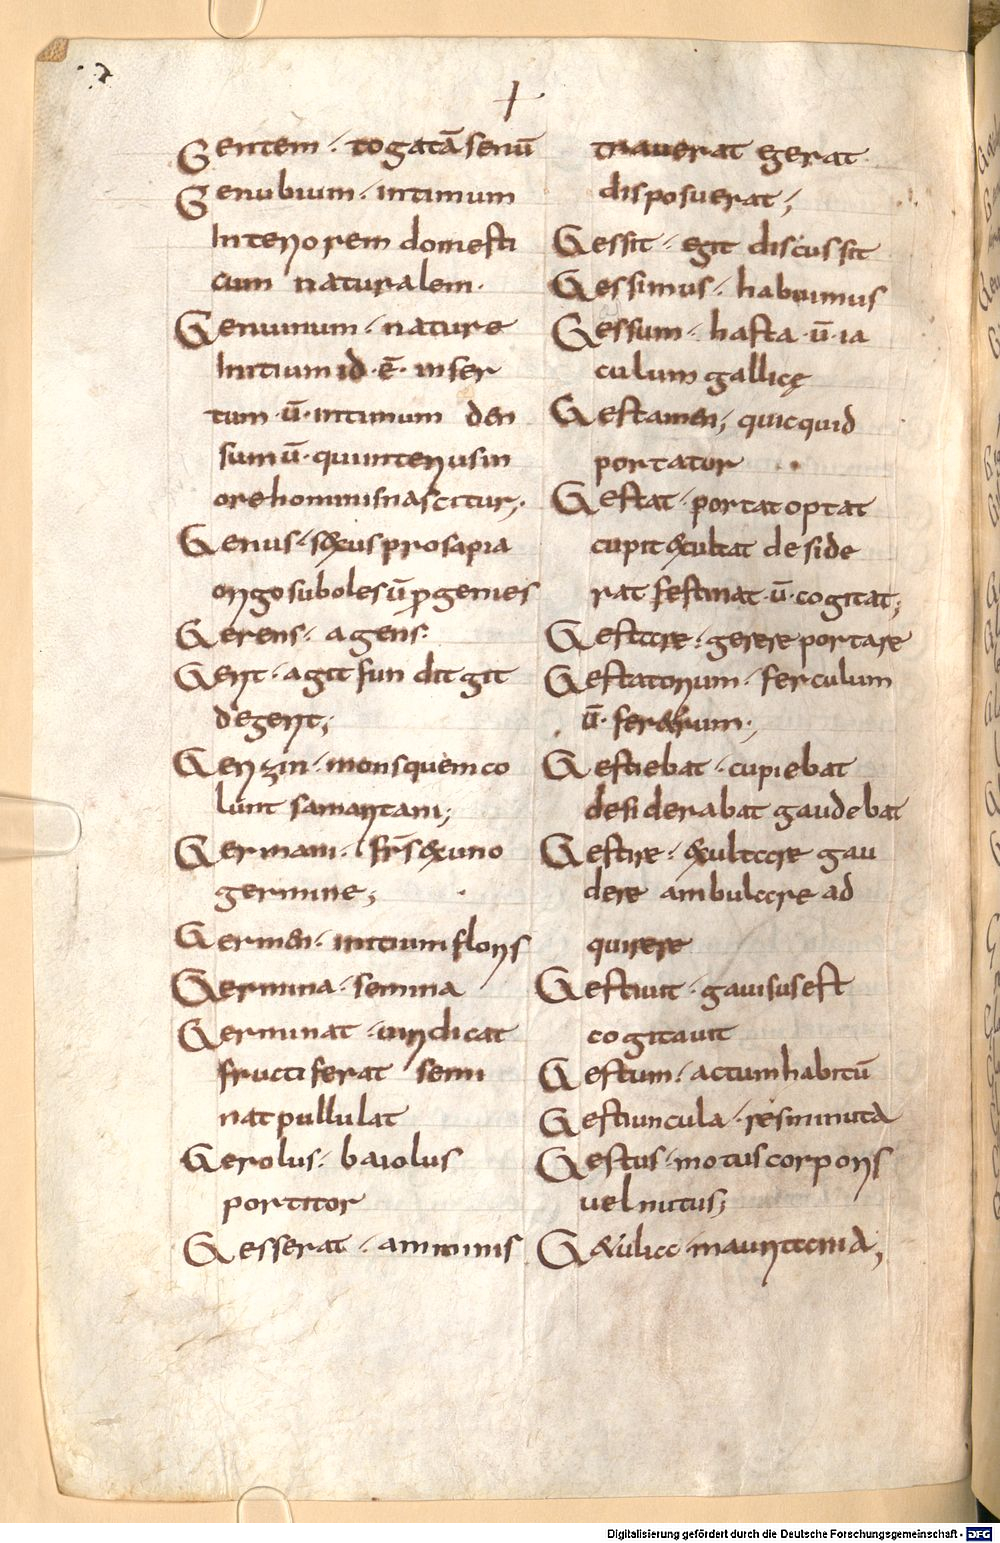 Gentem · togatā senū
Genubium · intimum
Interiorem domesti
cum naturalem ·
Genuinum · nature
Initium id · ē · inser
tum · ū · intimum den
sum ū · qui interius in
ore hominis nascitur;
Genus · sexus prosapia
origo suboles ū progenies
Gerens · agens ·
Gerit · agit fundit git
degerit;
Gerizin · mons quem co
lunt samaritani;
Germani · frs ex uno
germine;
Germen · initium floris
Germina · semina
Germinat · uiridicat
fructiferat semi
nat pullulat
Gerolus · baiolus
portitor
Gesserat · amminis
trauerat egerat
disposuerat;
Gessit · egit discussit
Gessimus · habuimus
Gessum · hasta · ū · ia
culum gallicę
Gestamen; quicquid
portatur
Gestat · portat optat
cupit exultat deside
rat festinat · ū · cogitat;
Gestare · gerere portare
Gestatorium · ferculum
ū · feretrum ·
Gestiebat · cupiebat
desiderabat gaudebat
Gestire · exultare gau
dere ambulare ad
quirere
Gestiuit · gauisus est
cogitauit
Gestum · actum habitū
Gestiuncula · res minuta
Gestus · motus corporis
uel nutus;
Getulia · mauritania;
Digitalisierung gefördert durch die Deutsche Forschungsgemeinschaft - DFG